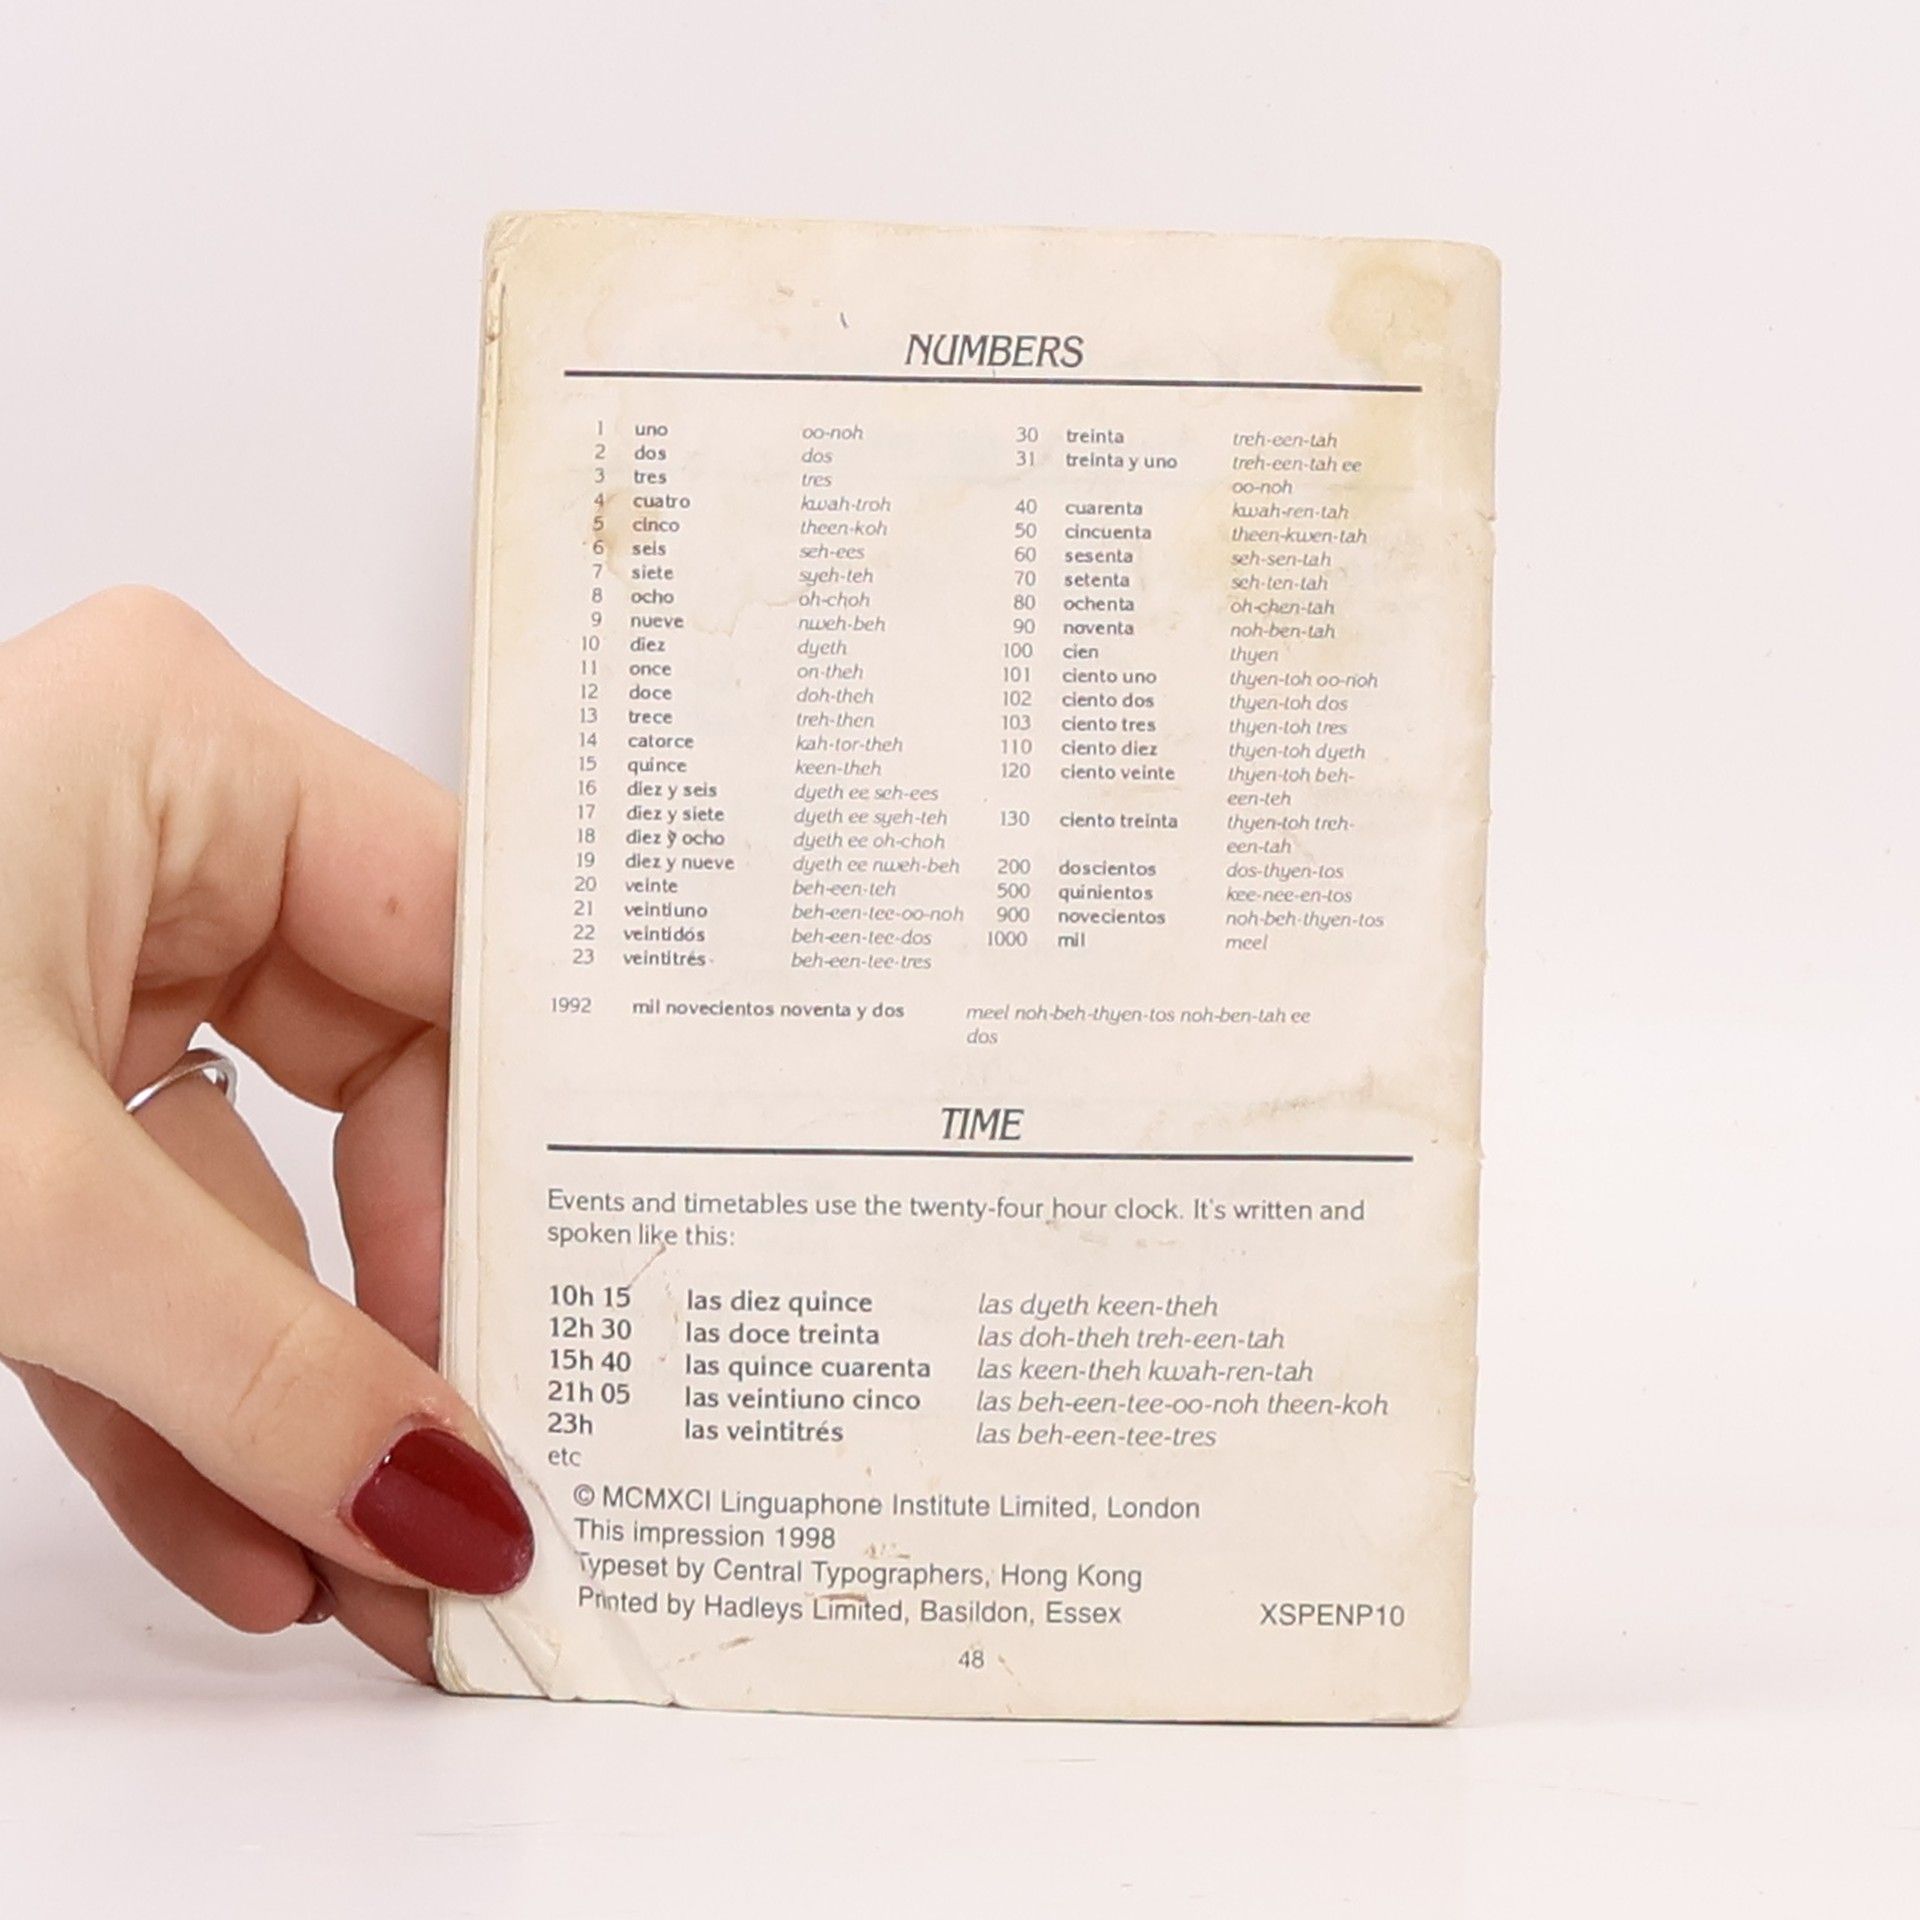 NUMBERS
1 uno oo-noh
2 dos dos
3 tres tres
4 cuatro kwah-troh
5 cinco theen-koh
6 seis seh-ees
7 siete syeh-teh
8 ocho oh-choh
9 nueve nweh-beh
10 diez dyeth
11 once on-theh
12 doce doh-theh
13 trece treh-then
14 catorce kah-tor-theh
15 quince keen-theh
16 diez y seis dyeth ee seh-ees
17 diez y siete dyeth ee syeh-teh
18 diez y ocho dyeth ee oh-choh
19 diez y nueve dyeth ee nweh-beh
20 veinte beh-een-teh
21 veintiuno beh-een-tee-oo-noh
22 veintidós beh-een-tee-dos
23 veintitrés beh-een-tee-tres
30 treinta treh-een-tah
31 treinta y uno treh-een-tah ee
oo-noh
40 cuarenta kwah-ren-tah
50 cincuenta theen-kwen-tah
60 sesenta seh-sen-tah
70 setenta seh-ten-tah
80 ochenta oh-chen-tah
90 noventa noh-ben-tah
100 cien thyen
101 ciento uno thyen-toh oo-noh
102 ciento dos thyen-toh dos
103 ciento tres thyen-toh tres
110 ciento diez thyen-toh dyeth
120 ciento veinte thyen-toh beh-
een-teh
130 ciento treinta thyen-toh treh-
een-tah
200 doscientos dos-thyen-tos
500 quinientos kee-nee-en-tos
900 novecientos noh-beh-thyen-tos
1000 mil meel
1992 mil novecientos noventa y dos meel noh-beh-thyen-tos noh-ben-tah ee
dos
TIME
Events and timetables use the twenty-four hour clock. It's written and
spoken like this:
10h 15 las diez quince las dyeth keen-theh
12h 30 las doce treinta las doh-theh treh-een-tah
15h 40 las quince cuarenta las keen-theh kwah-ren-tah
21h 05 las veintiuno cinco las beh-een-tee-oo-noh theen-koh
23h las veintitrés las beh-een-tee-tres
etc
© MCMXCI Linguaphone Institute Limited, London
This impression 1998
Typeset by Central Typographers, Hong Kong
Printed by Hadleys Limited, Basildon, Essex XSPENP10
48